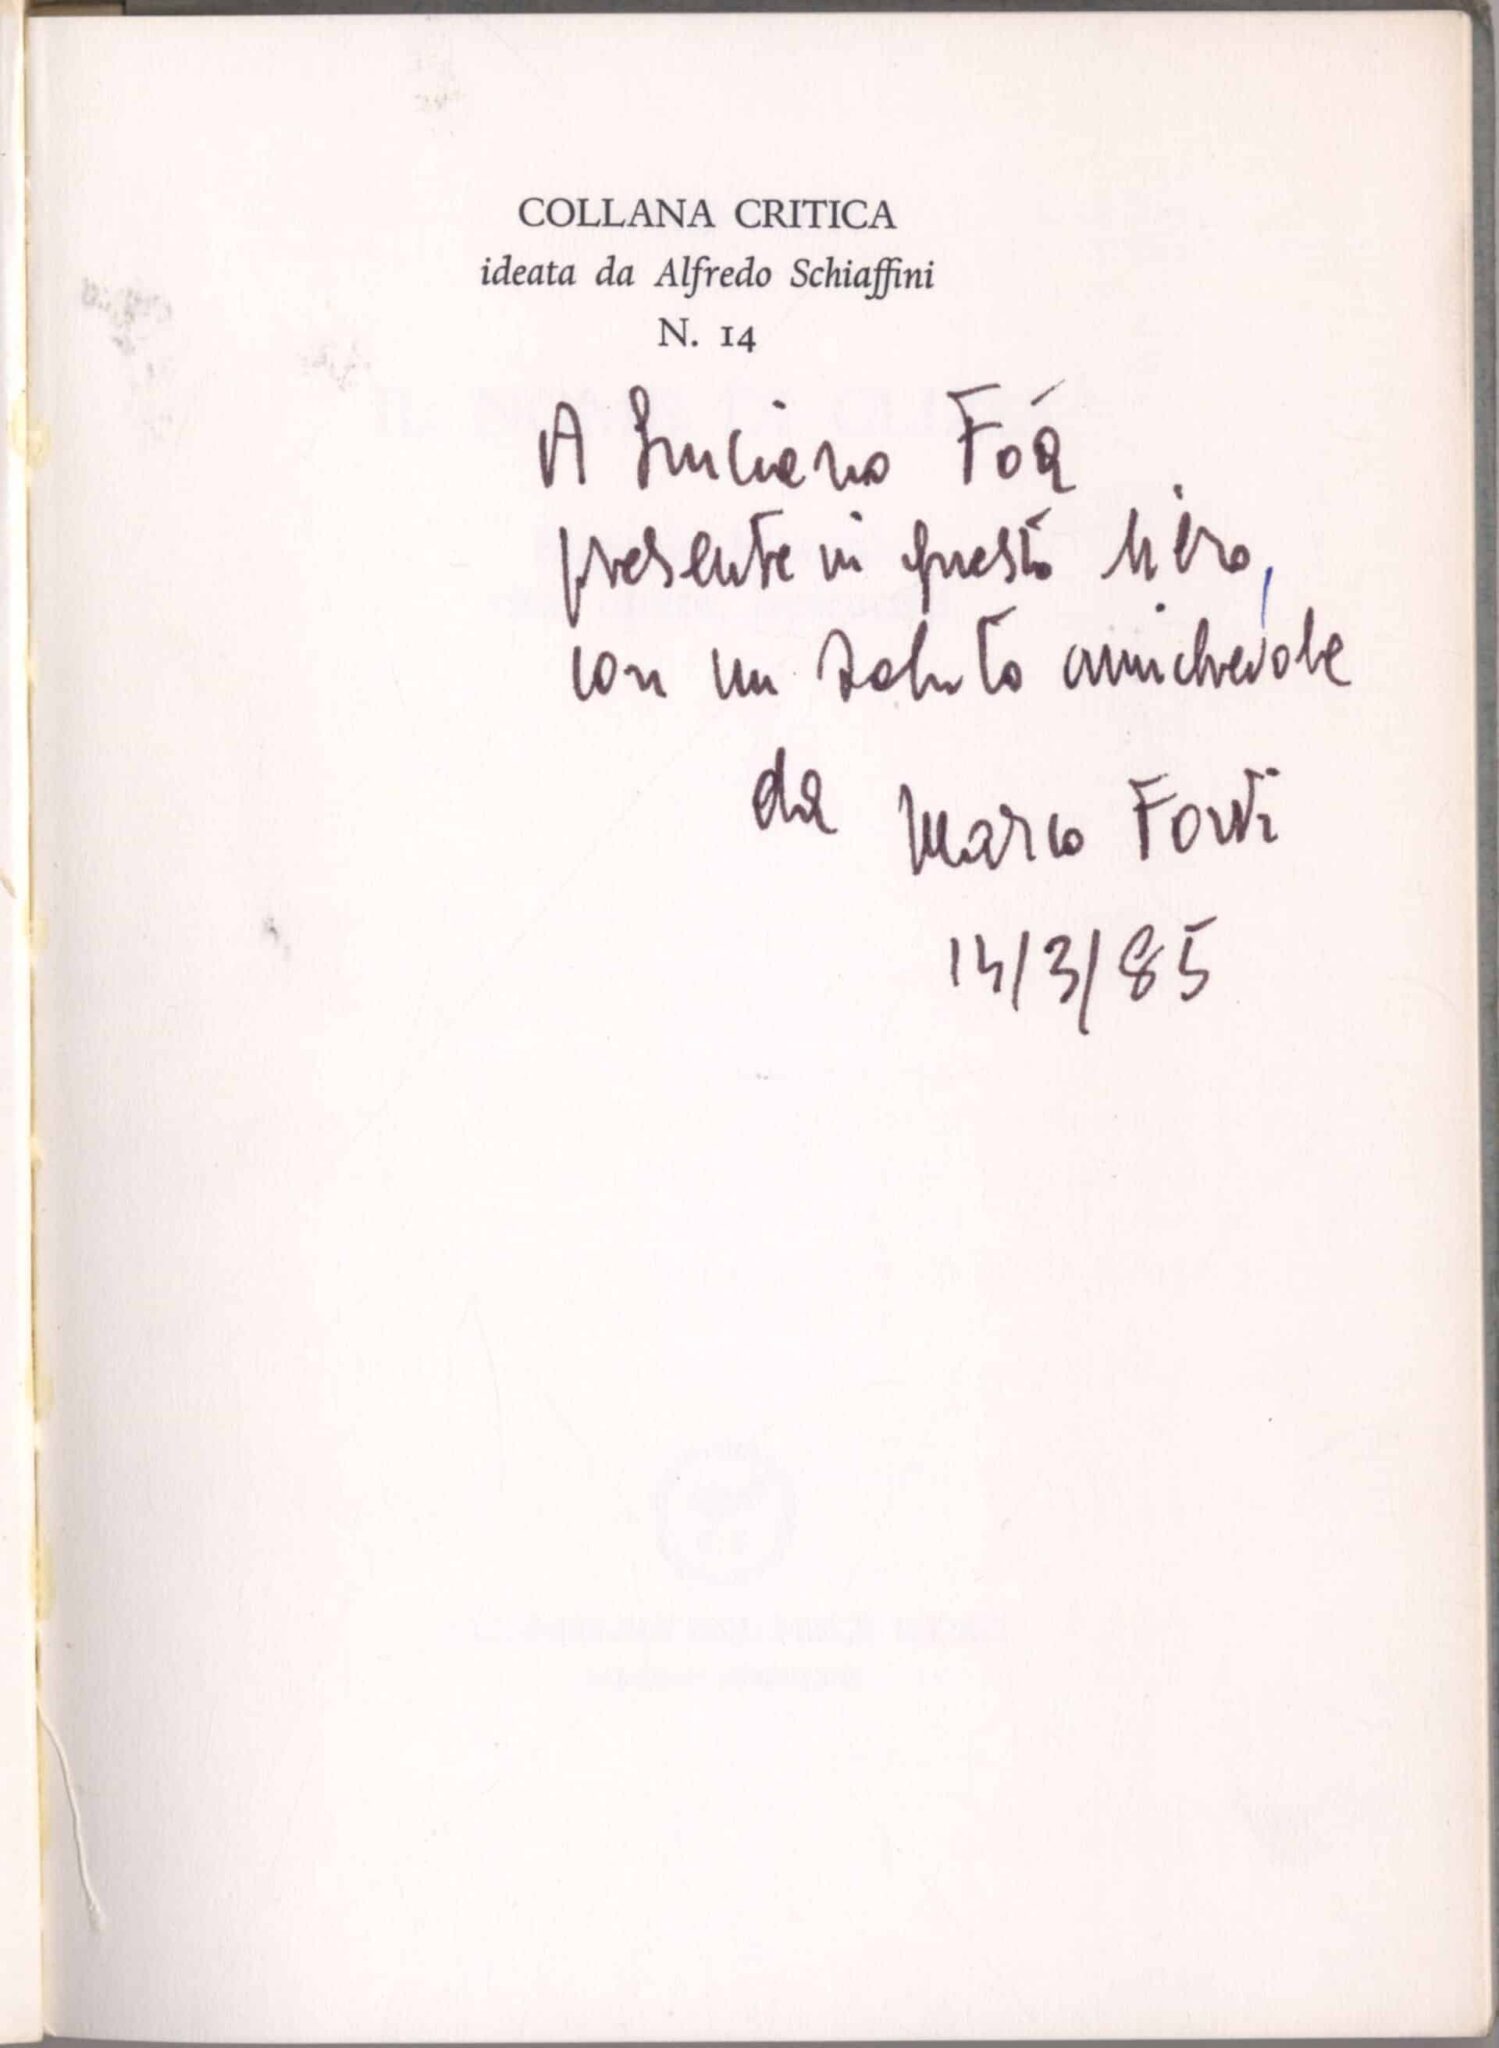 COLLANA CRITICA
ideata da Alfredo Schiaffini
N. 14
A Luciano Foà
presente in questo libro,
con un saluto amichevole
da Marco Forti
14/3/85